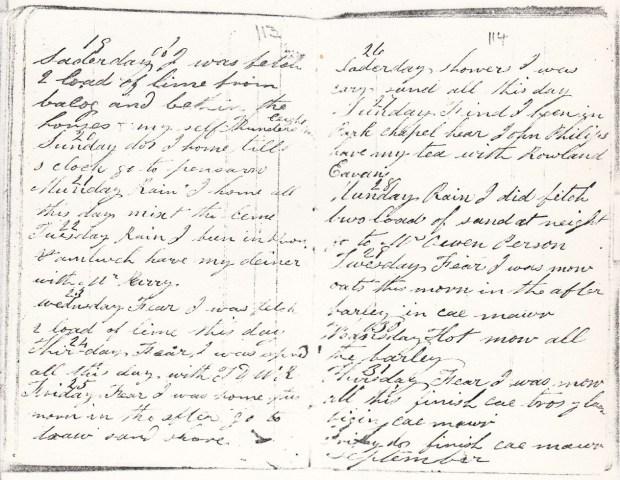 113
19
Saderday I was fetch
2 load of lime from
balog and the
horses + my self Thunder
20
Sunday dos I home till
5 clock go to penSarn
21
Munday Rain I home all
this day mixt the Leme
22
Tuesday Rain I bun in
have my deiner
with Mr Parry.
23
wedusday Fear I was fetch
2 load of lime this day
24
Thirsday Fear, I was
all this day with J D W R
25
Friday Fear I was home this
morn in the after go to
sand shore
114
26
Saderday shower I was
cary sand all this day
27
Sunday Find I been in
Park chapel hear John Philips
have my tea with Rowland
Eavans
28
Munday Rain I did fetch
two load of sand at neight
go to Mr Owen Person
29
Tuesday Fear I was mow
oats this morn in the after
barley in cae mawr
30
Wansday Hot mow all
the barley
31
Thirsday Fear I was mow
all this finish cae
cae mawr
Friday do finish cae mawr
September